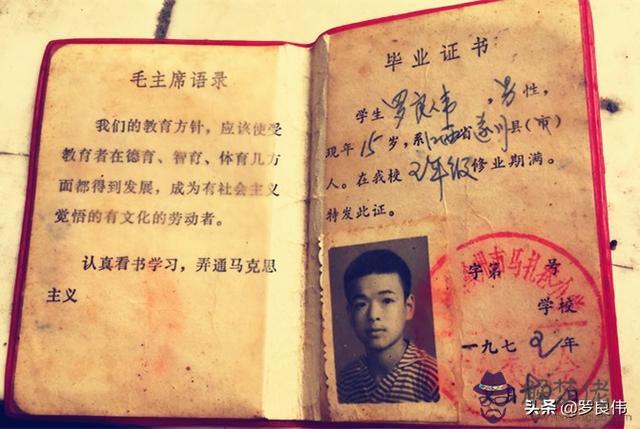 毛主席语录
我们的教育方针，应该使受
教育者在德育、智育、体育几方
面都得到发展，成为有社会主义
觉悟的有文化的劳动者。
认真看书学习，弄通马克思
主义
毕业证书
学生罗良伟，男性，
现年15岁，系江西省遂川县（市）
人。在我校五年级修业期满。
特发此证。
字第 号
学校
一九七五年
月
头条 @罗良伟